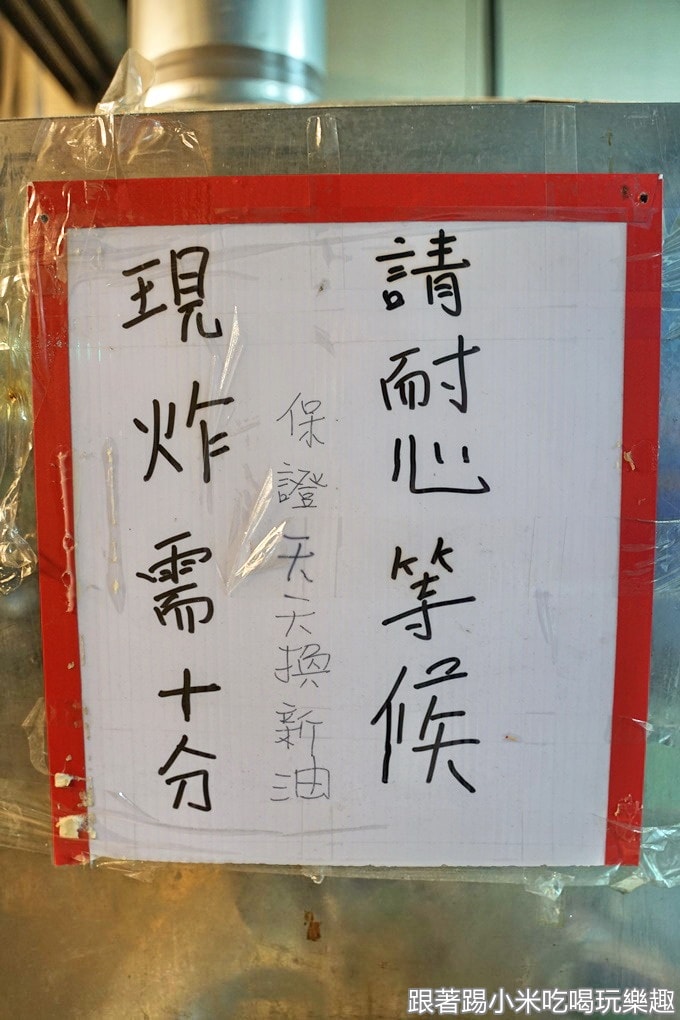 請耐心等候
保證天天換新油
現炸需十分
跟著踢小米吃喝玩樂趣